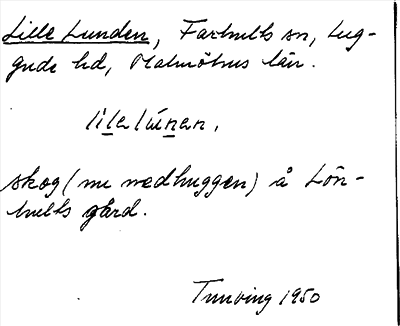 Lille Lunden, Farhults sn, Lug-
gude hd, Malmöhus län.
lile lúnen,
skog (nu nedhuggen) å Lön-
hults gård.
Tunving 1950